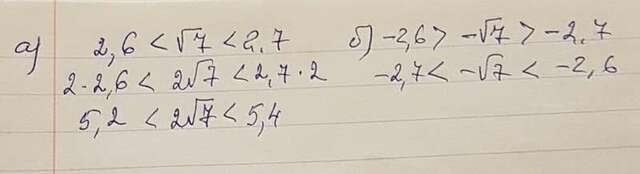 а) 2,6 < √7 < 2.7 б) -2,6 > -√7 > -2.7
2·2,6 < 2√7 < 2,7·2 -2,7 < -√7 < -2,6
5,2 < 2√7 < 5,4